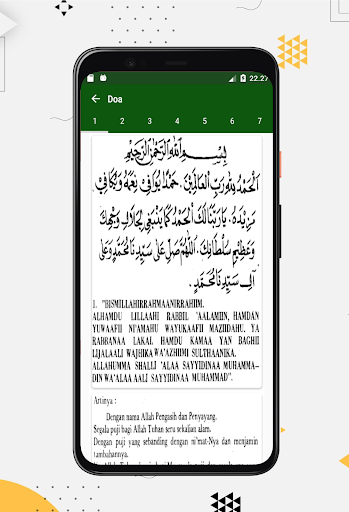 22.27
Doa
1 2 3 4 5 6 7
بِسْمِ اللهِ الرَّحْمٰنِ الرَّحِيْمِ
اَلْحَمْدُ لِلّٰهِ رَبِّ الْعَالَمِيْنَ، حَمْدًا يُوَافِيْ نِعَمَهُ وَيُكَافِيْ
مَزِيْدَهُ، يَارَبَّنَا لَكَ الْحَمْدُ كَمَا يَنْبَغِيْ لِجَلَالِ وَجْهِكَ
وَعَظِيْمِ سُلْطَانِكَ، اَللّٰهُمَّ صَلِّ عَلٰى سَيِّدِنَا مُحَمَّدٍ وَعَلٰى
اٰلِ سَيِّدِنَا مُحَمَّدٍ.
1. "BISMILLAHIRRAHMAANIRRAHIIM.
ALHAMDU LILLAAHI RABBIL 'AALAMIIN, HAMDAN
YUWAAFII NI'AMAHU WAYUKAAFII MAZIIDAHU. YA
RABBANAA LAKAL HAMDU KAMAA YAN BAGHII
LIJALAALI WAJHIKA WA'AZHIIMI SULTHAANIKA.
ALLAHUMMA SHALLI 'ALAA SAYYIDINAA MUHAMMA-
DIN WA'ALAA AALI SAYYIDINAA MUHAMMAD".
Artinya :
Dengan nama Allah Pengasih dan Penyayang.
Segala puji bagi Allah Tuhan seru sekalian alam.
Dengan puji yang sebanding dengan ni'mat-Nya dan menjamin
tambahannya.